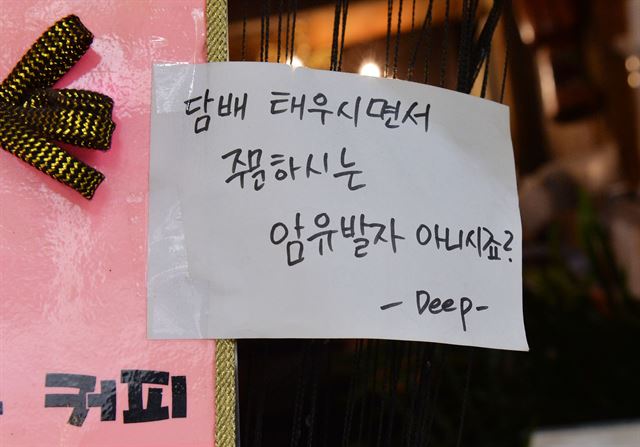 담배 태우시면서
주문하시는
암유발자 아니시죠?
- Deep -
커피